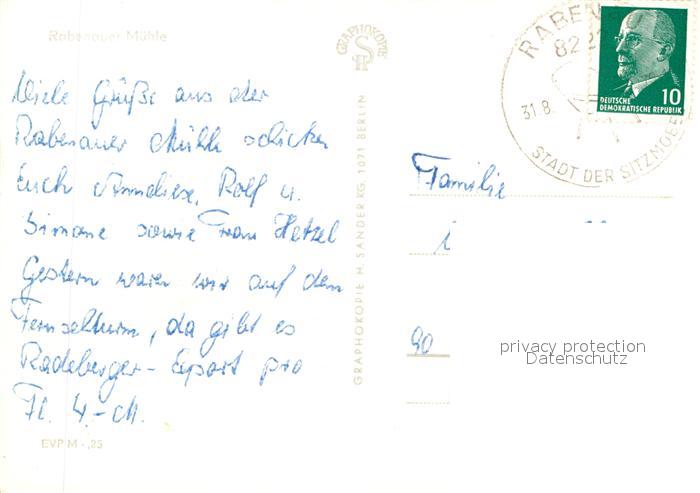 Rabenauer Mühle
Viele Grüße aus der
Rabenauer Mühle schicken
Euch Anneliese, Rolf u.
Simone sowie Frau Hetzel
Gestern waren wir auf dem
Fernsehturm, da gibt es
Radeberger-Export pro
Fl. 4,-M.
EVP M -,25
GRAPHOKOPIE
HS
GRAPHOKOPIE H. SANDER KG, 1071 BERLIN
RABEN
822
31.8.
STADT DER SITZMÖBEL
DEUTSCHE
DEMOKRATISCHE REPUBLIK
10
Familie
90
privacy protection
Datenschutz